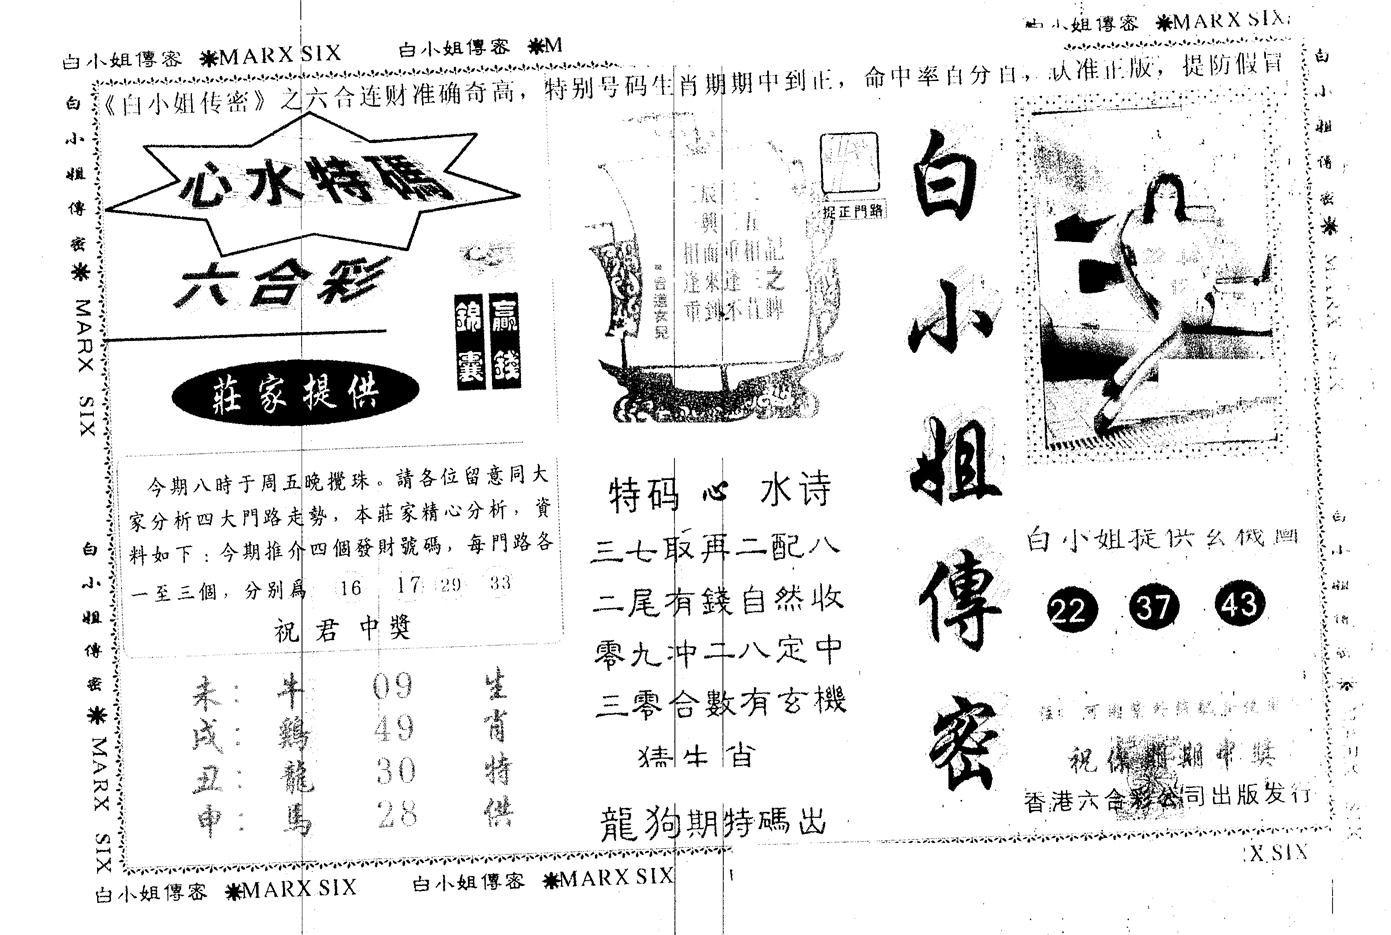 白小姐傳密 ✷MARX SIX 白小姐傳密 ✷M
白小姐傳密 ✷MARX SIX
《白小姐传密》之六合连财准确奇高，特别号码生肖期期中到正，命中率百分百，认准正版，提防假冒
白小姐傳密✷ MARX SIX
白小姐傳密✷ MARX SIX
心水特碼
六合彩
贏錢
錦囊
莊家提供
今期八時于周五晚攪珠。請各位留意同大
家分析四大門路走勢，本莊家精心分析，資
料如下：今期推介四個發財號碼，每門路各
一至三個，分别爲 16 17 29 33
祝君中獎
未： 牛 09 生
戌： 鷄 49 肖
丑： 龍 30 特
申： 馬 28 供
捉正門路
相面重相記
逢來逢三之
特码心水诗
三七取再二配八
二尾有錢自然收
零九沖二八定中
三零合數有玄機
猜生肖
龍狗期特碼出
白小姐傳密
白小姐提供玄機圖
22 37 43
祝保期期中獎
香港六合彩公司出版发行
白小姐傳密✷
白小姐傳密 ✷MARX SIX 白小姐傳密 ✷MARX SIX
X SIX